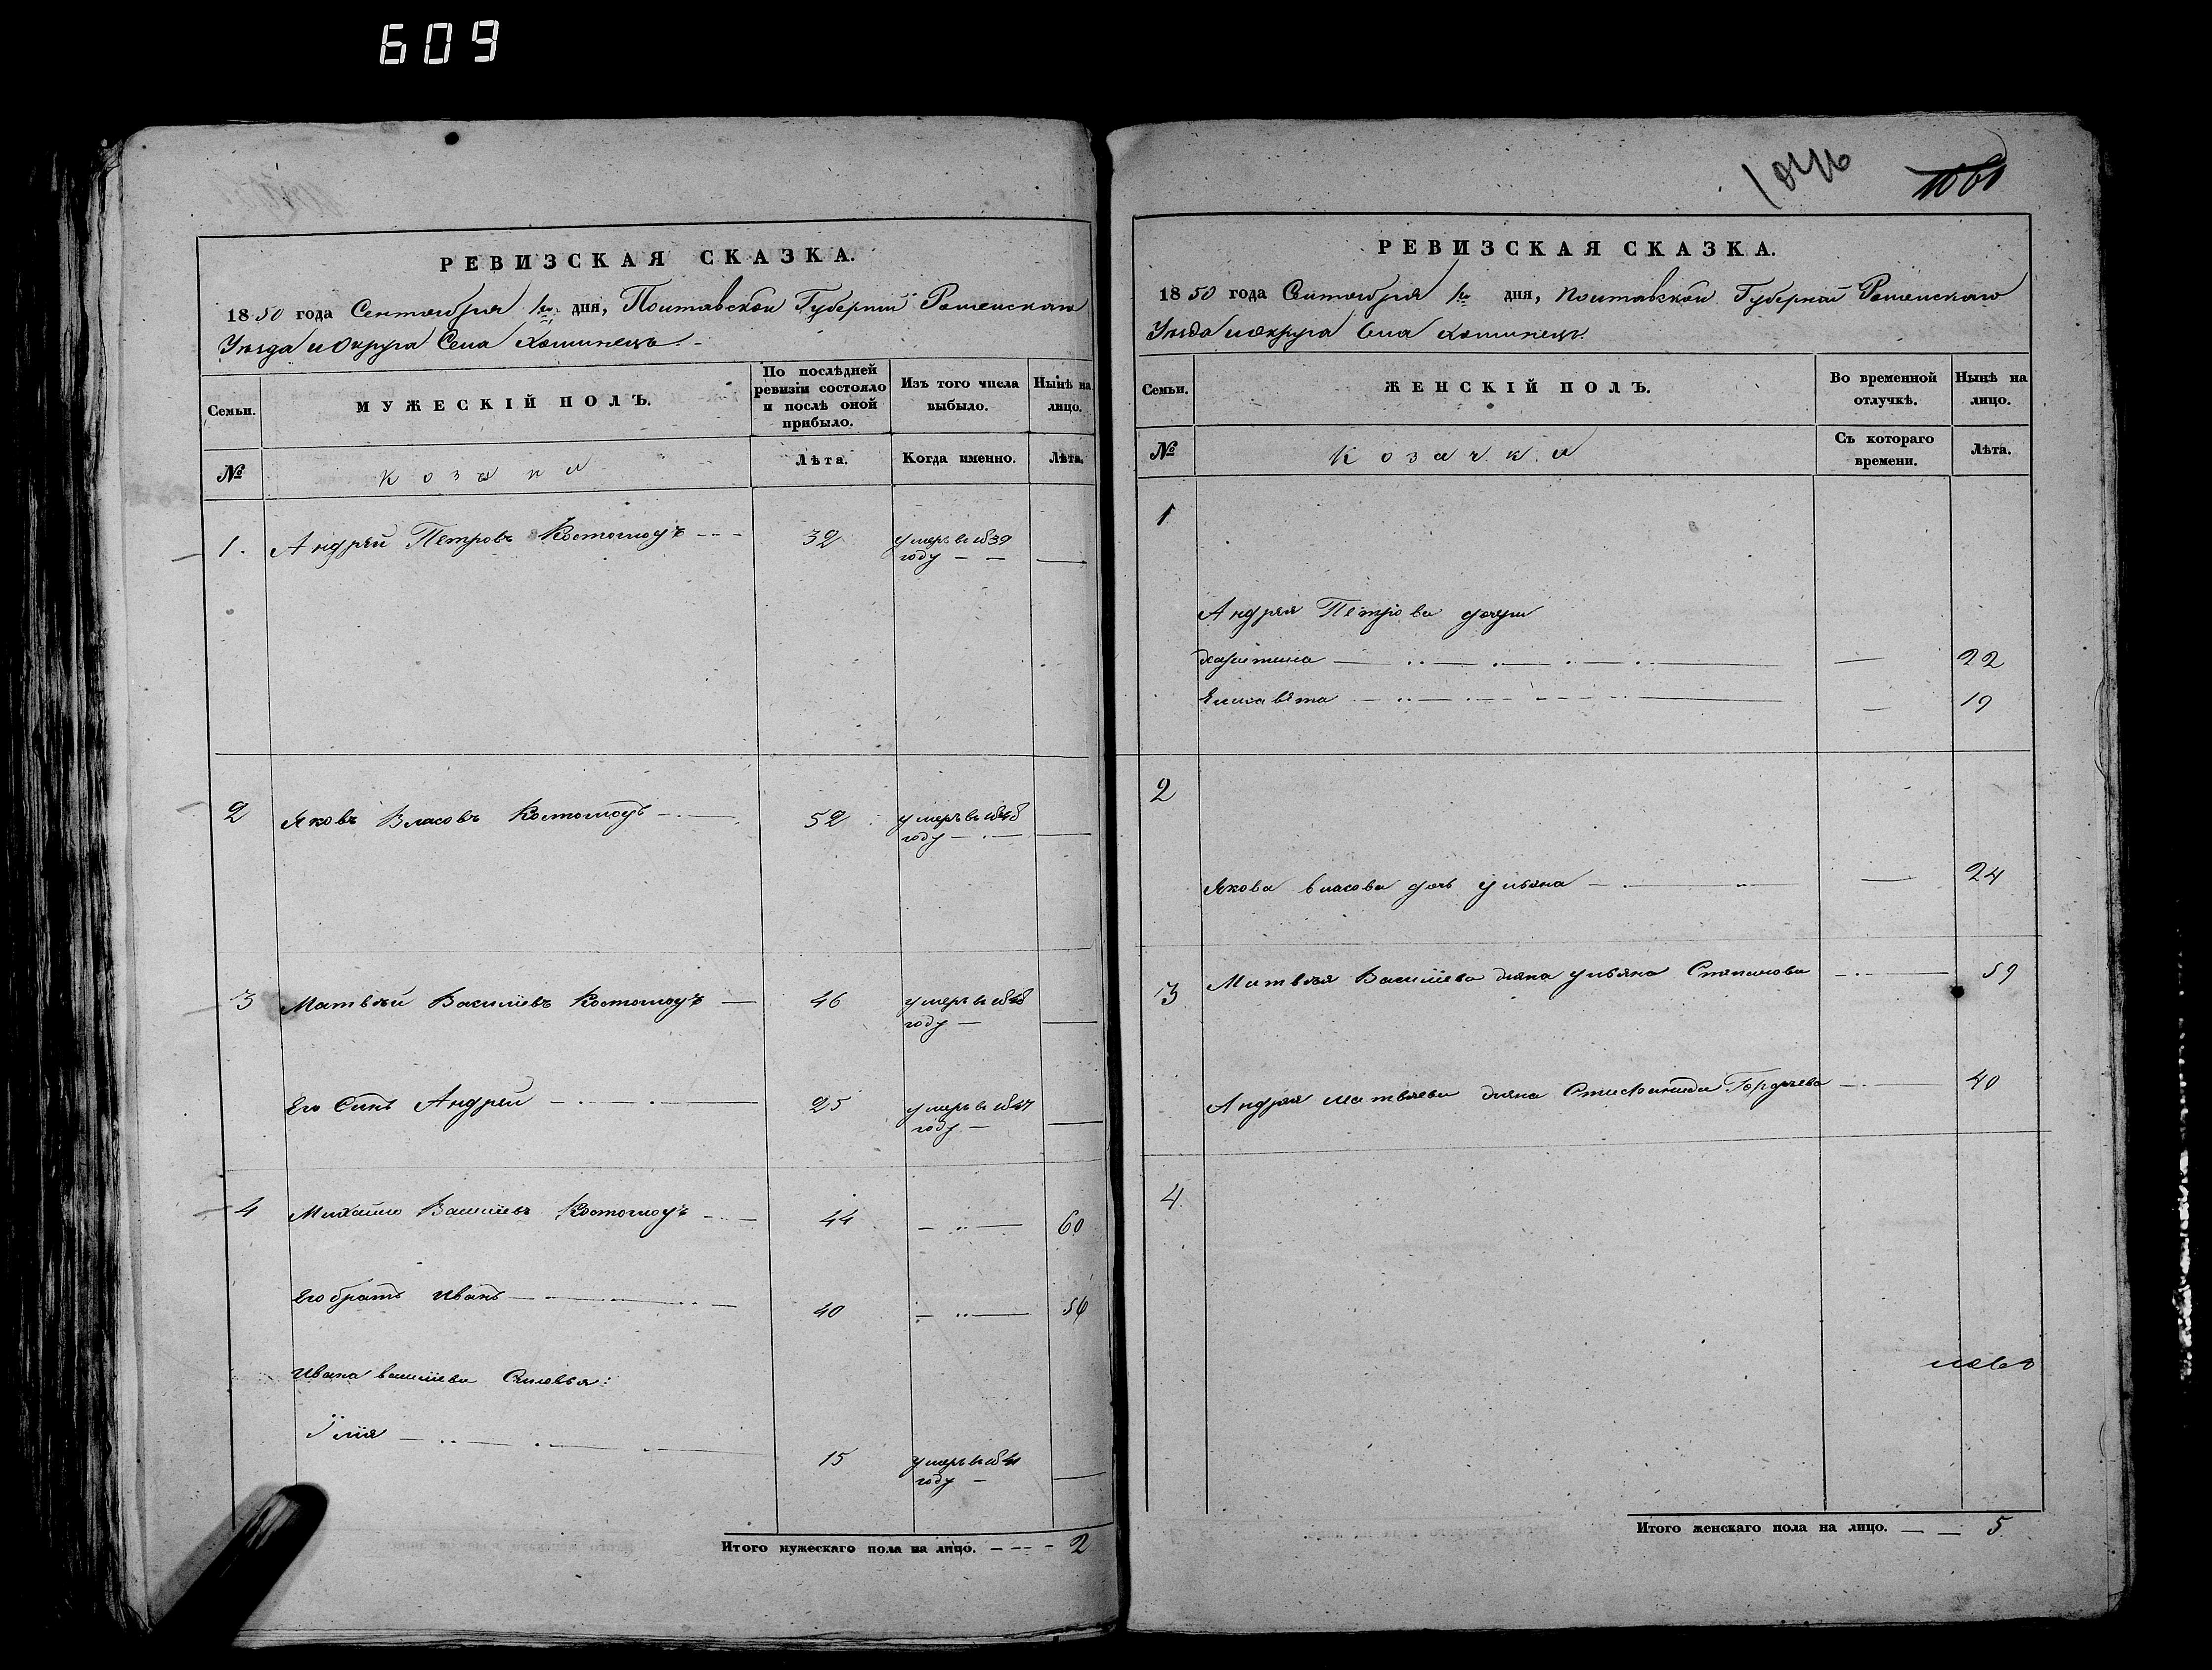 609
1046
1061
РЕВИЗСКАЯ СКАЗКА.
1850 года Сентября 1го дня, Полтавской Губернии Роменского
Уезда и Округа Села Хоминець.
Семьи.
МУЖЕСКІЙ ПОЛЪ.
По послѣдней ревизіи состояло и послѣ оной прибыло.
Изъ того числа выбыло.
Нынѣ на лицо.
№
Козаки
Лѣта.
Когда именно.
Лѣта.
1. Андрей Петровъ Костоглодъ 32 умеръ въ 1839
году
2 Яковъ Власовъ Костоглодъ 52 умеръ въ 1848
году
3 Матвѣй Василіевъ Костоглодъ 46 умеръ въ 1848
году
Его Сынъ Андрей 25 умеръ въ 1847
году
4 Михайло Василіевъ Костоглодъ 44 60
Его братъ Иванъ 40 56
Ивана Василіева Сыновья:
Илія 15 умеръ въ 1841
году
Итого мужескаго пола на лицо. 2
РЕВИЗСКАЯ СКАЗКА.
1850 года Сентября 1го дня, Полтавской Губернии Роменского
Уезда и Округа Села Хоминець.
Семьи.
ЖЕНСКІЙ ПОЛЪ.
Во временной отлучкѣ.
Нынѣ на лицо.
№
Козачки
Съ котораго времени.
Лѣта.
1
Андрея Петрова дочери
Харитина 22
Елисавета 19
2
Якова Власова дочь Ульяна 24
3 Матвѣя Василіева жена Ульяна Степанова 59
Андрея Матвѣева жена Стефанида Гордѣева 40
4
Итого женскаго пола на лицо. 5